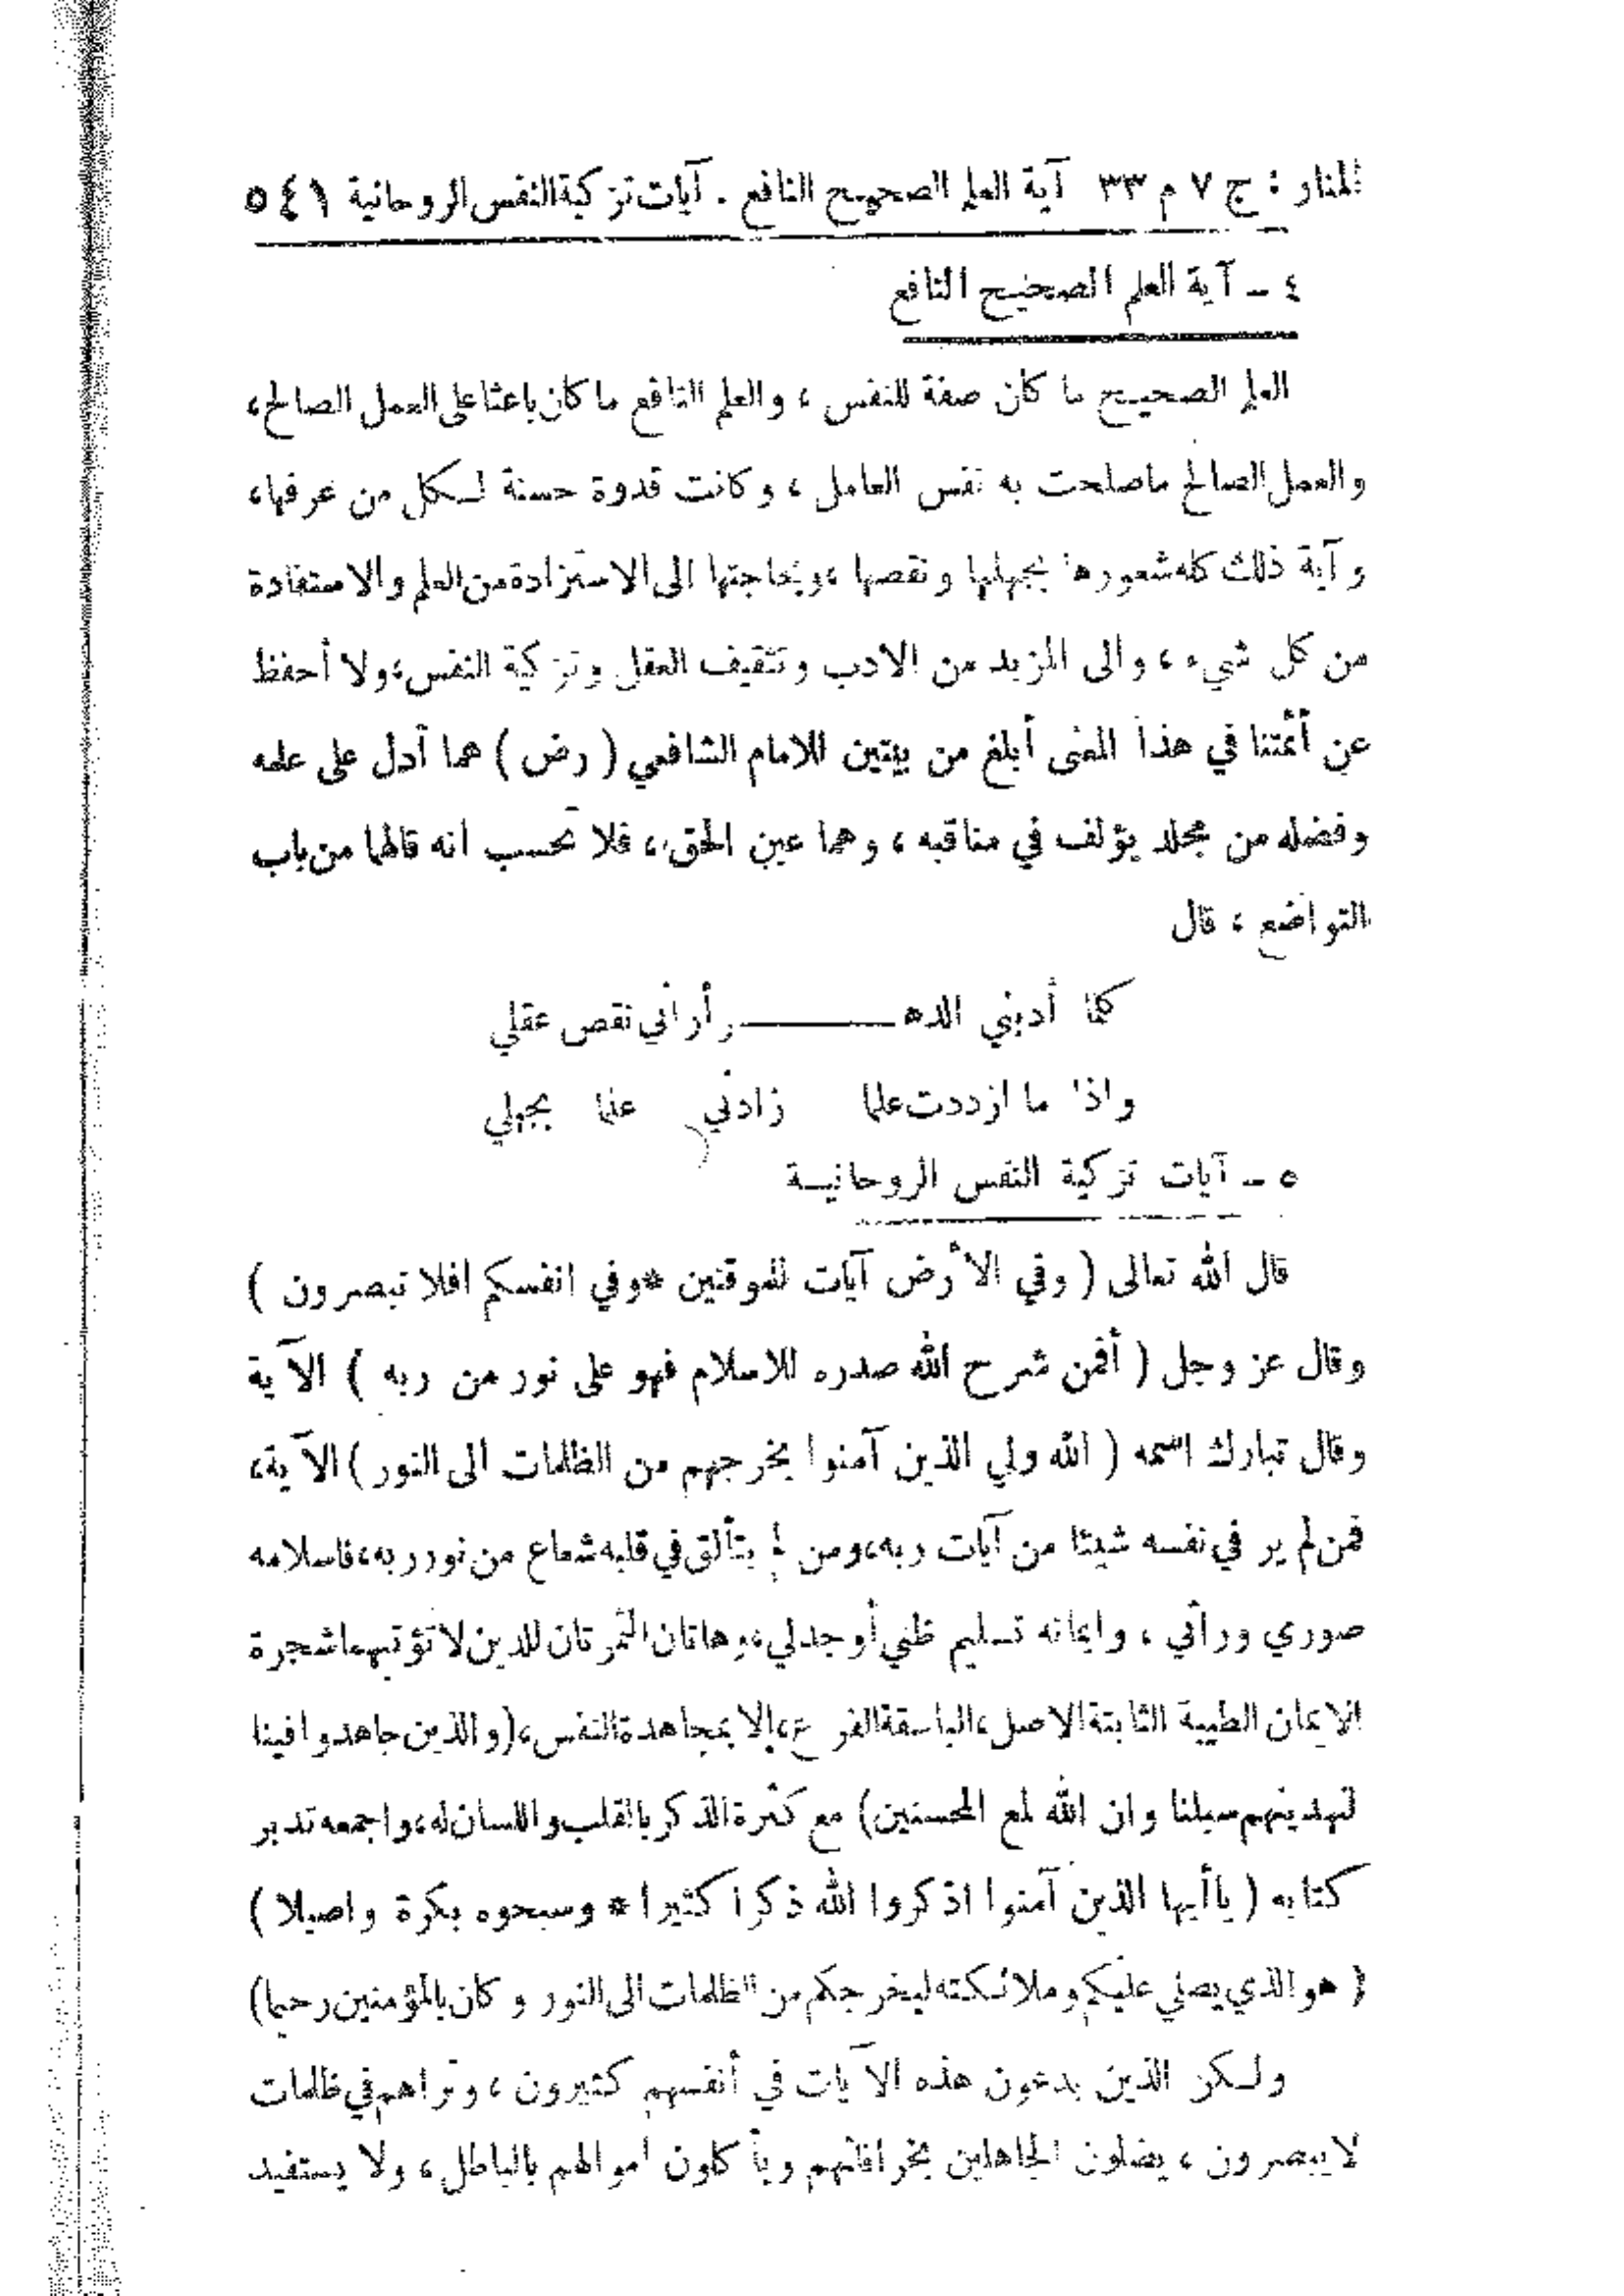 المنار : ج ٧ م ٣٣ آية العلم الصحيح النافع . آيات تزكية النفس الروحانية ٥٤١
٤ ـ آية العلم الصحيح النافع
العلم الصحيح ما كان صفة للنفس ، والعلم النافع ما كان باعثا على العمل الصالح ،
والعمل الصالح ماصلحت به نفس العامل ، وكانت قدوة حسنة لكل من عرفها ،
وآية ذلك كله شعورها بجهلها ونقصها ، وبحاجتها الى الاستزادة من العلم والاستفادة
من كل شيء ، والى المزيد من الادب وتثقيف العقل وتزكية النفس ، ولا أحفظ
عن أئمتنا في هذا المعنى أبلغ من بيتين للامام الشافعي ( رض ) هما أدل على علمه
وفضله من مجلد يؤلف في مناقبه ، وهما عين الحق ، فلا تحسب انه قالهما من باب
التواضع ، قال
كلما أدبني الدهـــــر أراني نقص عقلي
واذا ما ازددت علما زادني علما بجهلي
٥ ـ آيات تزكية النفس الروحانية
قال الله تعالى ( وفي الأرض آيات للموقنين * وفي انفسكم افلا تبصرون )
وقال عز وجل ( أفمن شرح الله صدره للاسلام فهو على نور من ربه ) الآية
وقال تبارك اسمه ( الله ولي الذين آمنوا يخرجهم من الظلمات الى النور ) الآية ،
فمن لم ير في نفسه شيئا من آيات ربه ، ومن لم يتألق في قلبه شعاع من نور ربه ، فاسلامه
صوري وراثي ، وايمانه تسليم ظني أو جدلي ، وهاتان الثمرتان للدين لا تؤتيهما شجرة
الايمان الطيبة الثابتة الاصل ، الباسقة الفرع ، إلا بمجاهدة النفس ، ( والذين جاهدوا فينا
لنهدينهم سبلنا وان الله لمع المحسنين ) مع كثرة الذكر بالقلب واللسان له ، واجمعه تدبر
كتابه ( ياأيها الذين آمنوا اذكروا الله ذكرا كثيرا * وسبحوه بكرة واصيلا )
( هو الذي يصلي عليكم وملائكته ليخرجكم من الظلمات الى النور وكان بالمؤمنين رحيما )
ولكن الذين يدعون هذه الآيات في أنفسهم كثيرون ، وتراهم في ظلمات
لايبصرون ، يضلون الجاهلين بخرافاتهم ويأكلون أموالهم بالباطل ، ولا يستفيد